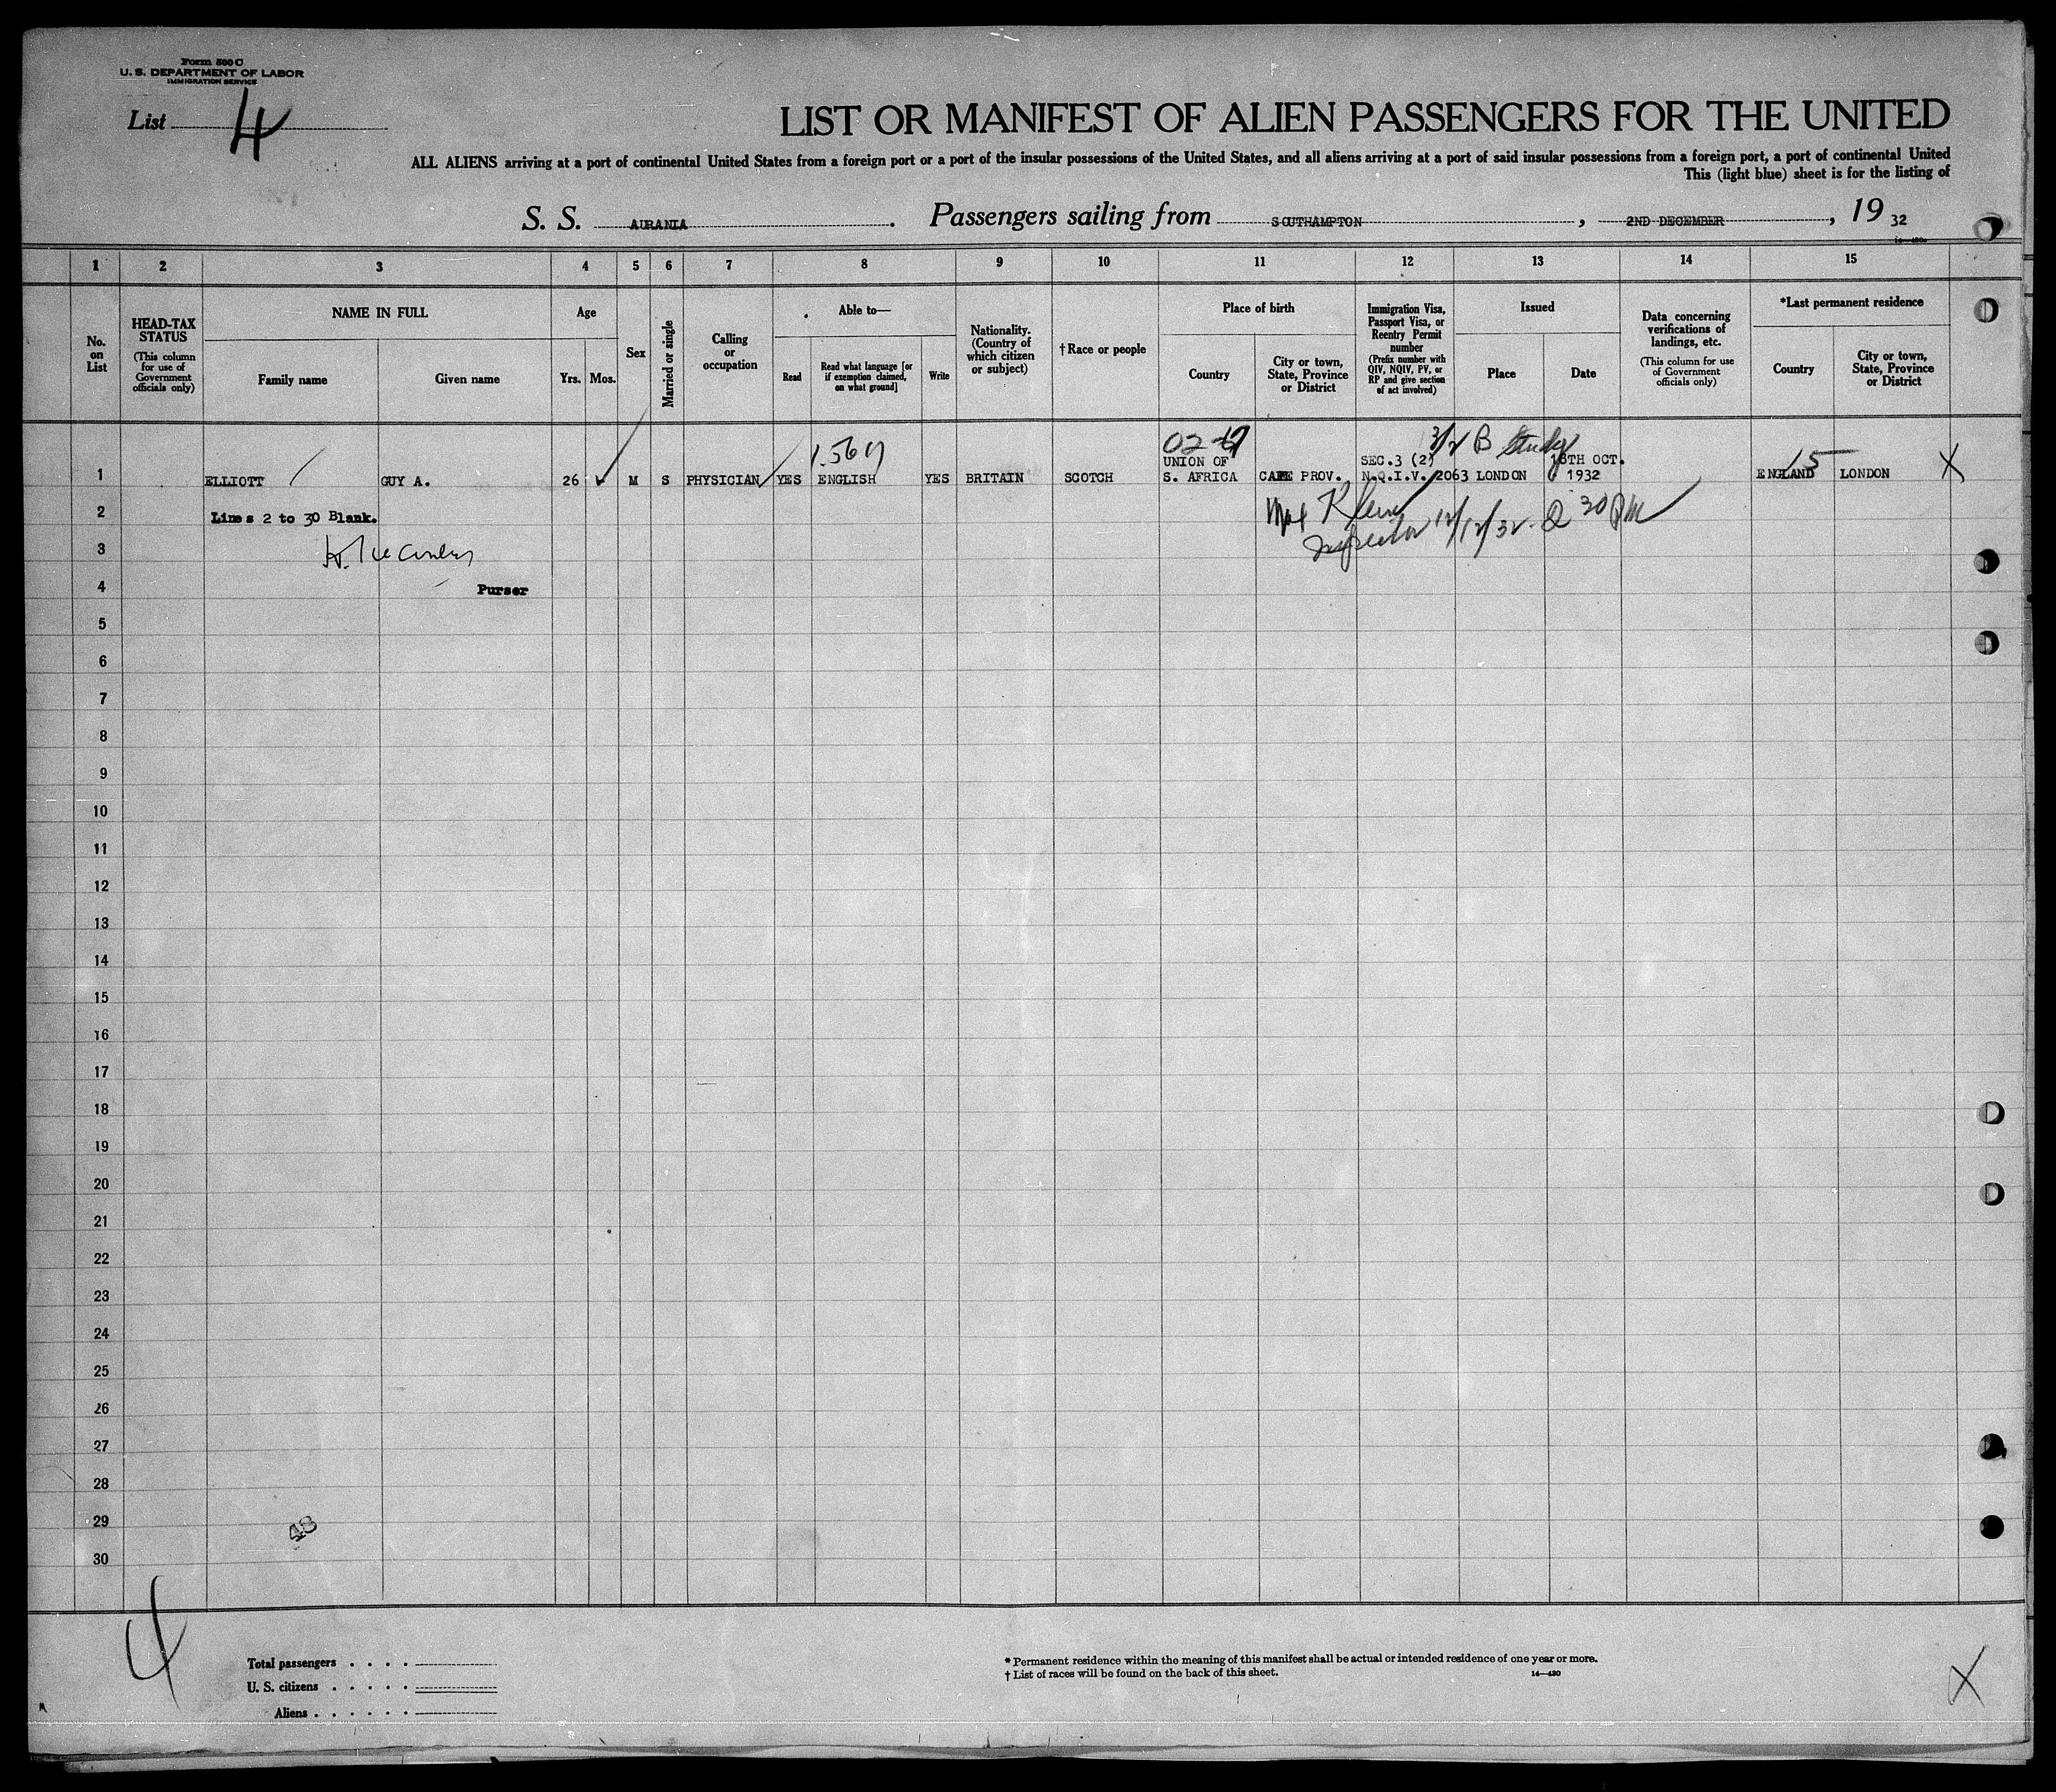 Form 500 C
U. S. DEPARTMENT OF LABOR
IMMIGRATION SERVICE
List 4
LIST OR MANIFEST OF ALIEN PASSENGERS FOR THE UNITED
ALL ALIENS arriving at a port of continental United States from a foreign port or a port of the insular possessions of the United States, and all aliens arriving at a port of said insular possessions from a foreign port, a port of continental United
This (light blue) sheet is for the listing of
S. S. AURANIA. Passengers sailing from SOUTHAMPTON, 2ND DECEMBER, 19 32
14-430
1 2 3 4 5 6 7 8 9 10 11 12 13 14 15
No. on List
HEAD-TAX STATUS (This column for use of Government officials only)
NAME IN FULL
Family name
Given name
Age
Yrs. Mos.
Sex
Married or single
Calling or occupation
Able to—
Read
Read what language [or if exemption claimed, on what ground]
Write
Nationality. (Country of which citizen or subject)
†Race or people
Place of birth
Country
City or town, State, Province or District
Immigration Visa, Passport Visa, or Reentry Permit number (Prefix number with QIV, NQIV, PV, or RP and give section of act involved)
Issued
Place
Date
Data concerning verifications of landings, etc. (This column for use of Government officials only)
*Last permanent residence
Country
City or town, State, Province or District
3/2 B Study
15
1 ELLIOTT GUY A. 26 M S PHYSICIAN YES ENGLISH YES BRITAIN SCOTCH UNION OF S. AFRICA CAPE PROV. SEC.3 (2) N.Q.I.V. 2063 LONDON 18TH OCT. 1932 ENGLAND LONDON X
2 Lines 2 to 30 Blank.
Max Klein
Inspector 12/12/32 30 PM
3
4 Purser
5
6
7
8
9
10
11
12
13
14
15
16
17
18
19
20
21
22
23
24
25
26
27
28
29
48
30
4
Total passengers . . . .
U. S. citizens . . . . .
Aliens . . . . . .
* Permanent residence within the meaning of this manifest shall be actual or intended residence of one year or more.
† List of races will be found on the back of this sheet. 14—430
X